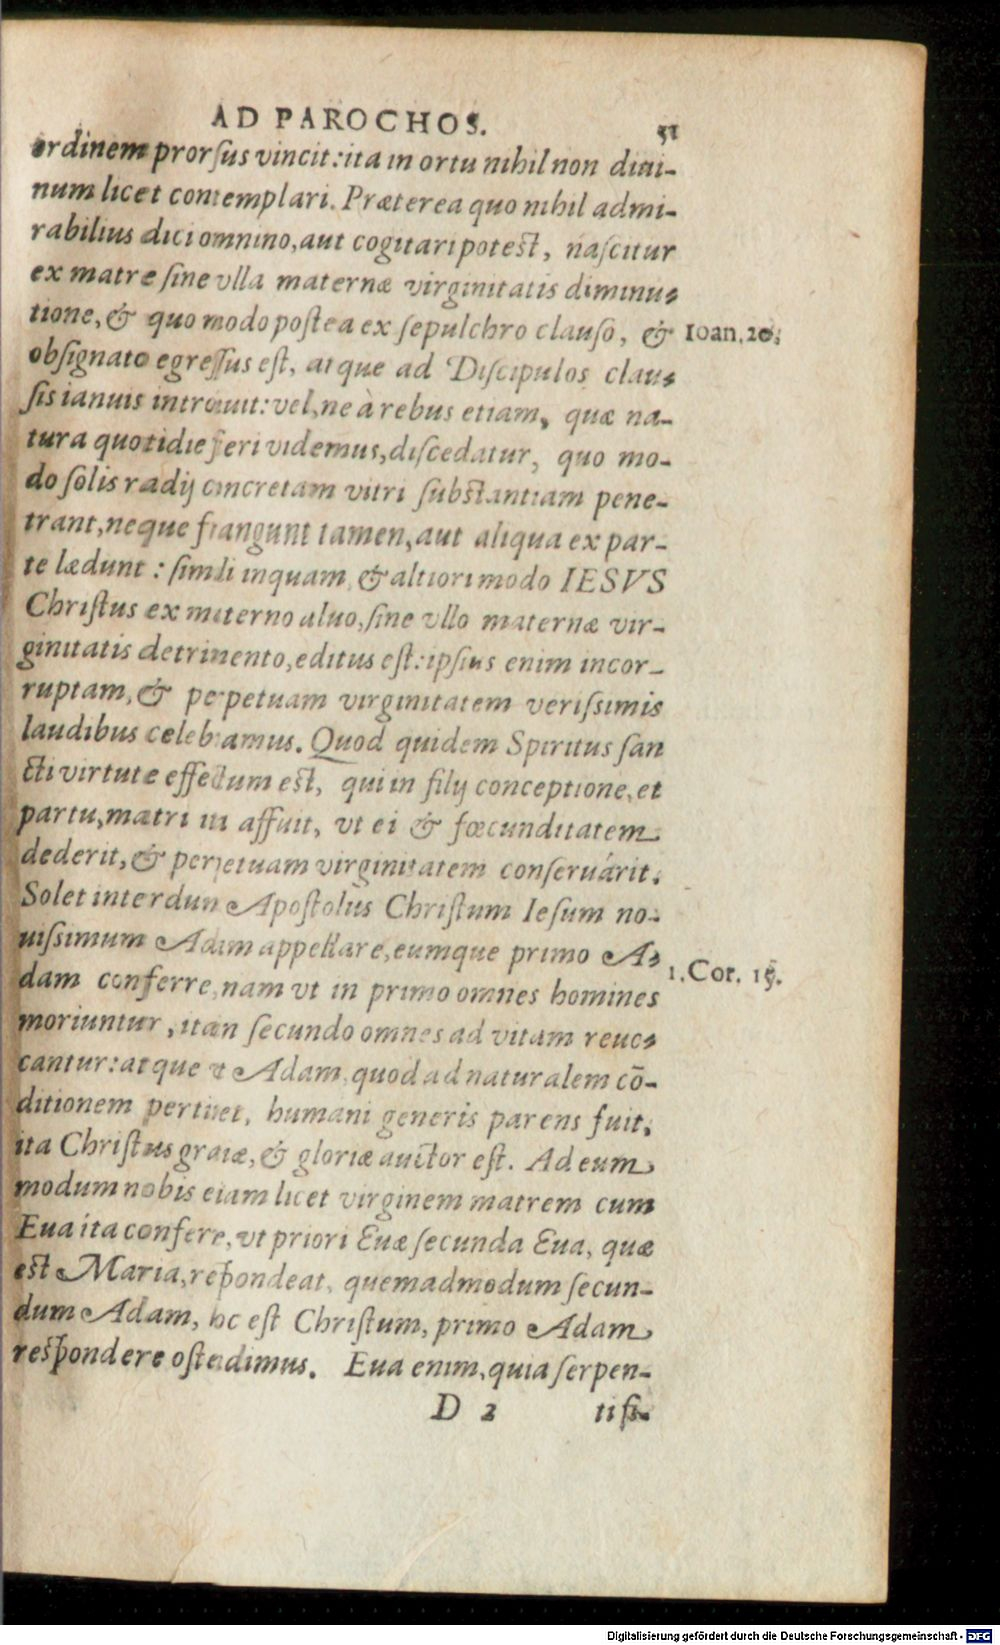 AD PAROCHOS. 51
ordinem prorſus vincit: ita in ortu nihil non diui-
num licet contemplari. Præterea quo nihil admi-
rabilius dici omnino, aut cogitari poteſt, naſcitur
ex matre ſine vlla maternæ virginitatis diminu-
tione, & quo modo poſtea ex ſepulchro clauſo, &
Ioan. 20.
obſignato egreſſus eſt, atque ad Diſcipulos clau-
ſis ianuis introiuit: vel, ne à rebus etiam, quæ na-
tura quotidie fieri videmus, diſcedatur, quo mo-
do ſolis radij concretam vitri ſubſtantiam pene-
trant, neque frangunt tamen, aut aliqua ex par-
te lædunt: ſimili inquam, & altiori modo IESVS
Chriſtus ex materno aluo, ſine vllo maternæ vir-
ginitatis detrimento, editus eſt: ipſius enim incor-
ruptam, & perpetuam virginitatem veriſsimis
laudibus celebramus. Quod quidem Spiritus ſan
cti virtute effectum eſt, qui in filij conceptione, et
partu, matri ita affuit, vt ei & fœcunditatem
dederit, & perpetuam virginitatem conſeruárit.
Solet interdum Apoſtolus Chriſtum Ieſum no-
uiſsimum Adam appellare, eumque primo A-
1. Cor. 15.
dam conferre, nam vt in primo omnes homines
moriuntur, ita in ſecundo omnes ad vitam reuo-
cantur: atque vt Adam, quod ad naturalem cō-
ditionem pertinet, humani generis parens fuit,
ita Chriſtus gratiæ, & gloriæ auctor eſt. Ad eum
modum nobis etiam licet virginem matrem cum
Eua ita conferre, vt priori Euæ ſecunda Eua, quæ
eſt Maria, reſpondeat, quemadmodum ſecun-
dum Adam, hoc eſt Chriſtum, primo Adam
reſpondere oſtendimus. Eua enim, quia ſerpen-
D 2 ti fi-
Digitalisierung gefördert durch die Deutsche Forschungsgemeinschaft - DFG